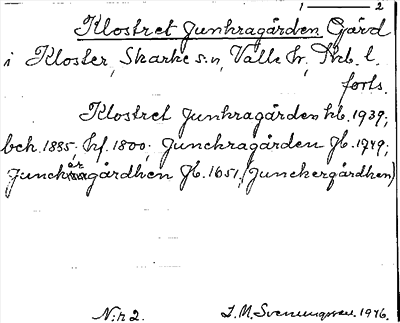 1 — 2
Klostret Junkragården Gård
i Kloster, Skarke sn, Valle hr, Skb. l.
forts.
Klostret Junkragården hb. 1939;
bek. 1885; hf. 1800; Junchragården Jb. 1749;
Junchärgårdhen Jb. 1651, (Junckergårdhen)
N:r 2. I. M. Svenungsson. 1946.